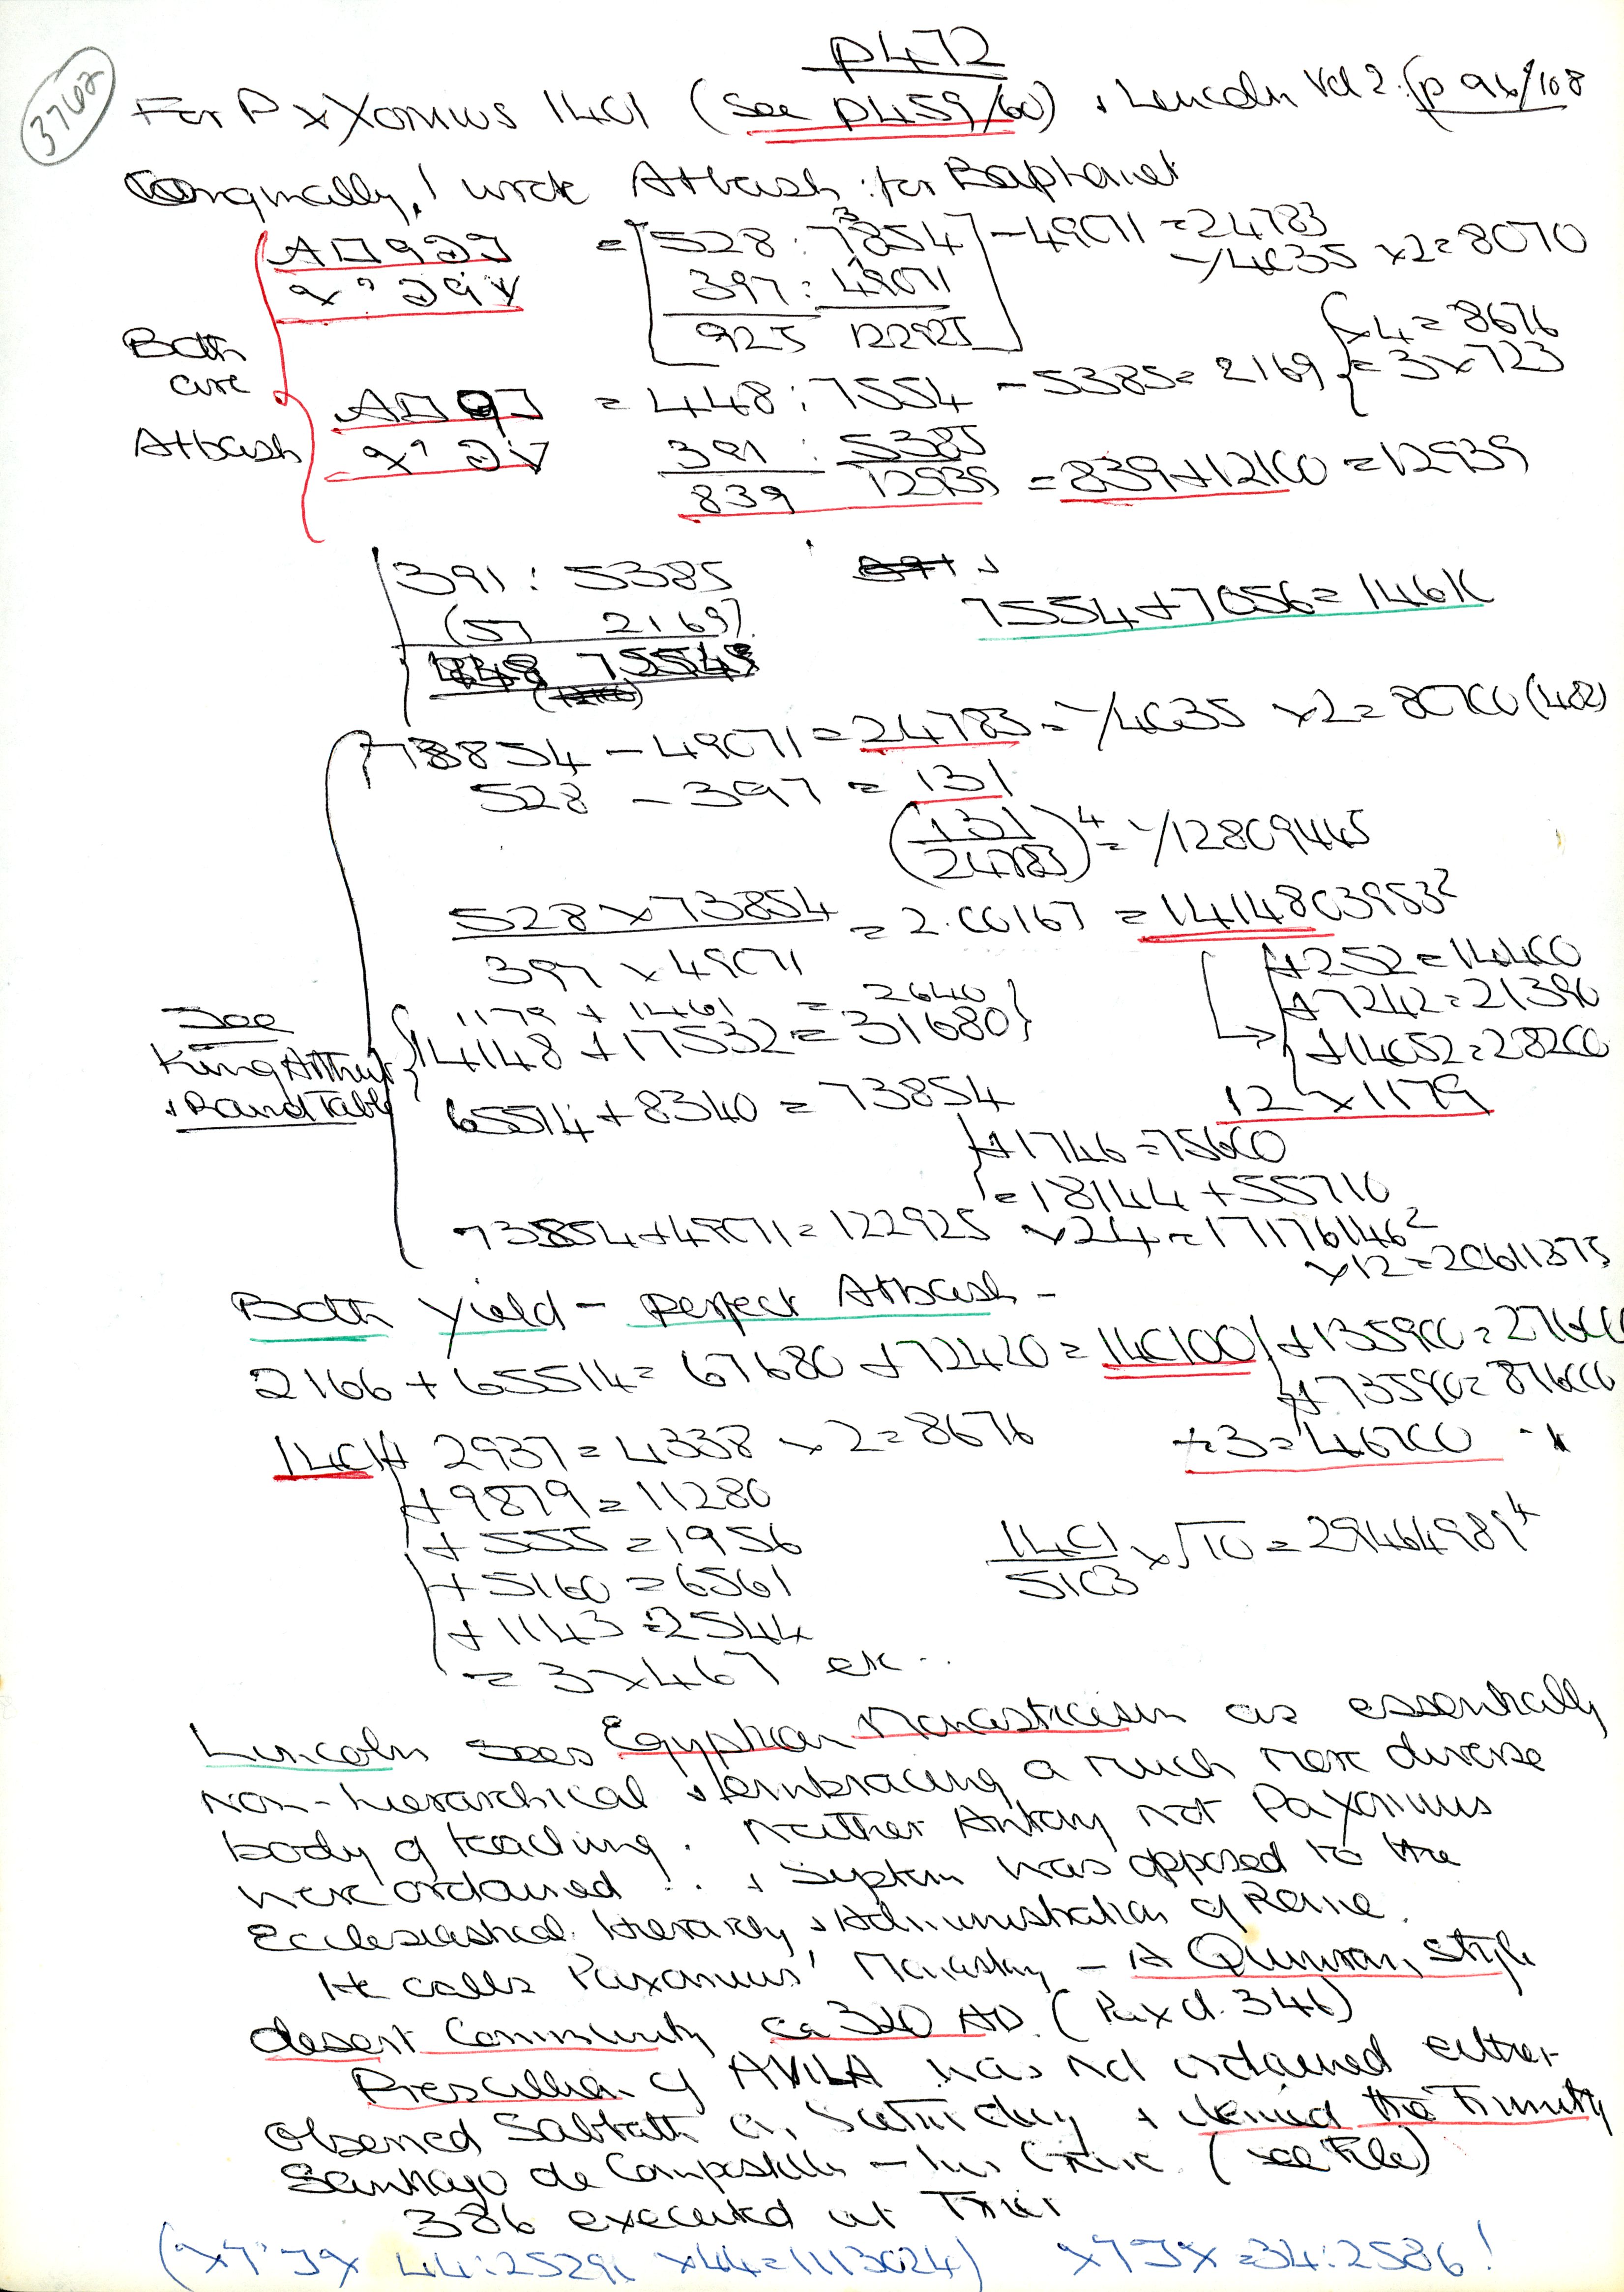 p472
3762
For P x Xomius 1401 (see p459/60) + Lincoln Vol 2. (p 96/108
Originally, I wrote Atbash for Baphomet
= [528 : 73854] - 49071 = 24783
-/4035 x2 = 8070
397 : 49071
925 122925
Both
are
Atbash
= 448 : 7554 - 5385 = 2169
x4 = 8676
= 3 x 723
391 : 5385
839 12939 = 839 + 12100 = 12939
391 : 5385
(57 2169)
7554 + 7056 = 14610
448 7554
73854 - 49071 = 24783 = -/4035 x2 = 80700 (402)
528 - 397 = 131
(131/24783)⁴ = -/12809445
528 x 73854
= 2.00167 = 1414803953²
397 x 49071
+252 = 14400
+7242 = 21390
+14052 = 28200
12 x 1179
1179 + 1461 = 2640
14148 + 17532 = 31680
See
King Arthur
+ Round Table
65514 + 8340 = 73854
+1746 = 75600
= 18144 + 55710
73854 + 49071 = 122925 x24 = 17176146²
x12 = 20611375
Both yield - perfect Atbash -
2166 + 65514 = 67680 + 72420 = 140100
+135900 = 276000
+735900 = 876000
÷3 = 46700
1401 + 2937 = 4338 x 2 = 8676
+ 9879 = 11280
+ 555 = 1956
+ 5160 = 6561
+ 1143 = 2544
= 3 x 467 etc..
1401/5103 x √10 = 29464981⁴
Lincoln sees Egyptian Monasticism as essentially
non-hierarchical + embracing a much more diverse
body of teaching. Neither Antony not Paxomius
were ordained!. + System was opposed to the
Ecclesiastical Hierarchy + Administration of Rome.
He calls Paxomius' Monastery - A Qumran style
desert Community ca 320 AD. (Pax d. 346)
Priscillian of AVILA was not ordained either
observed Sabbath on Saturday + denied the Trinity
Santiago de Compostella - his Grave (see File)
386 executed at Trier
44 : 25291 x44 = 1113024) = 34 : 2586!